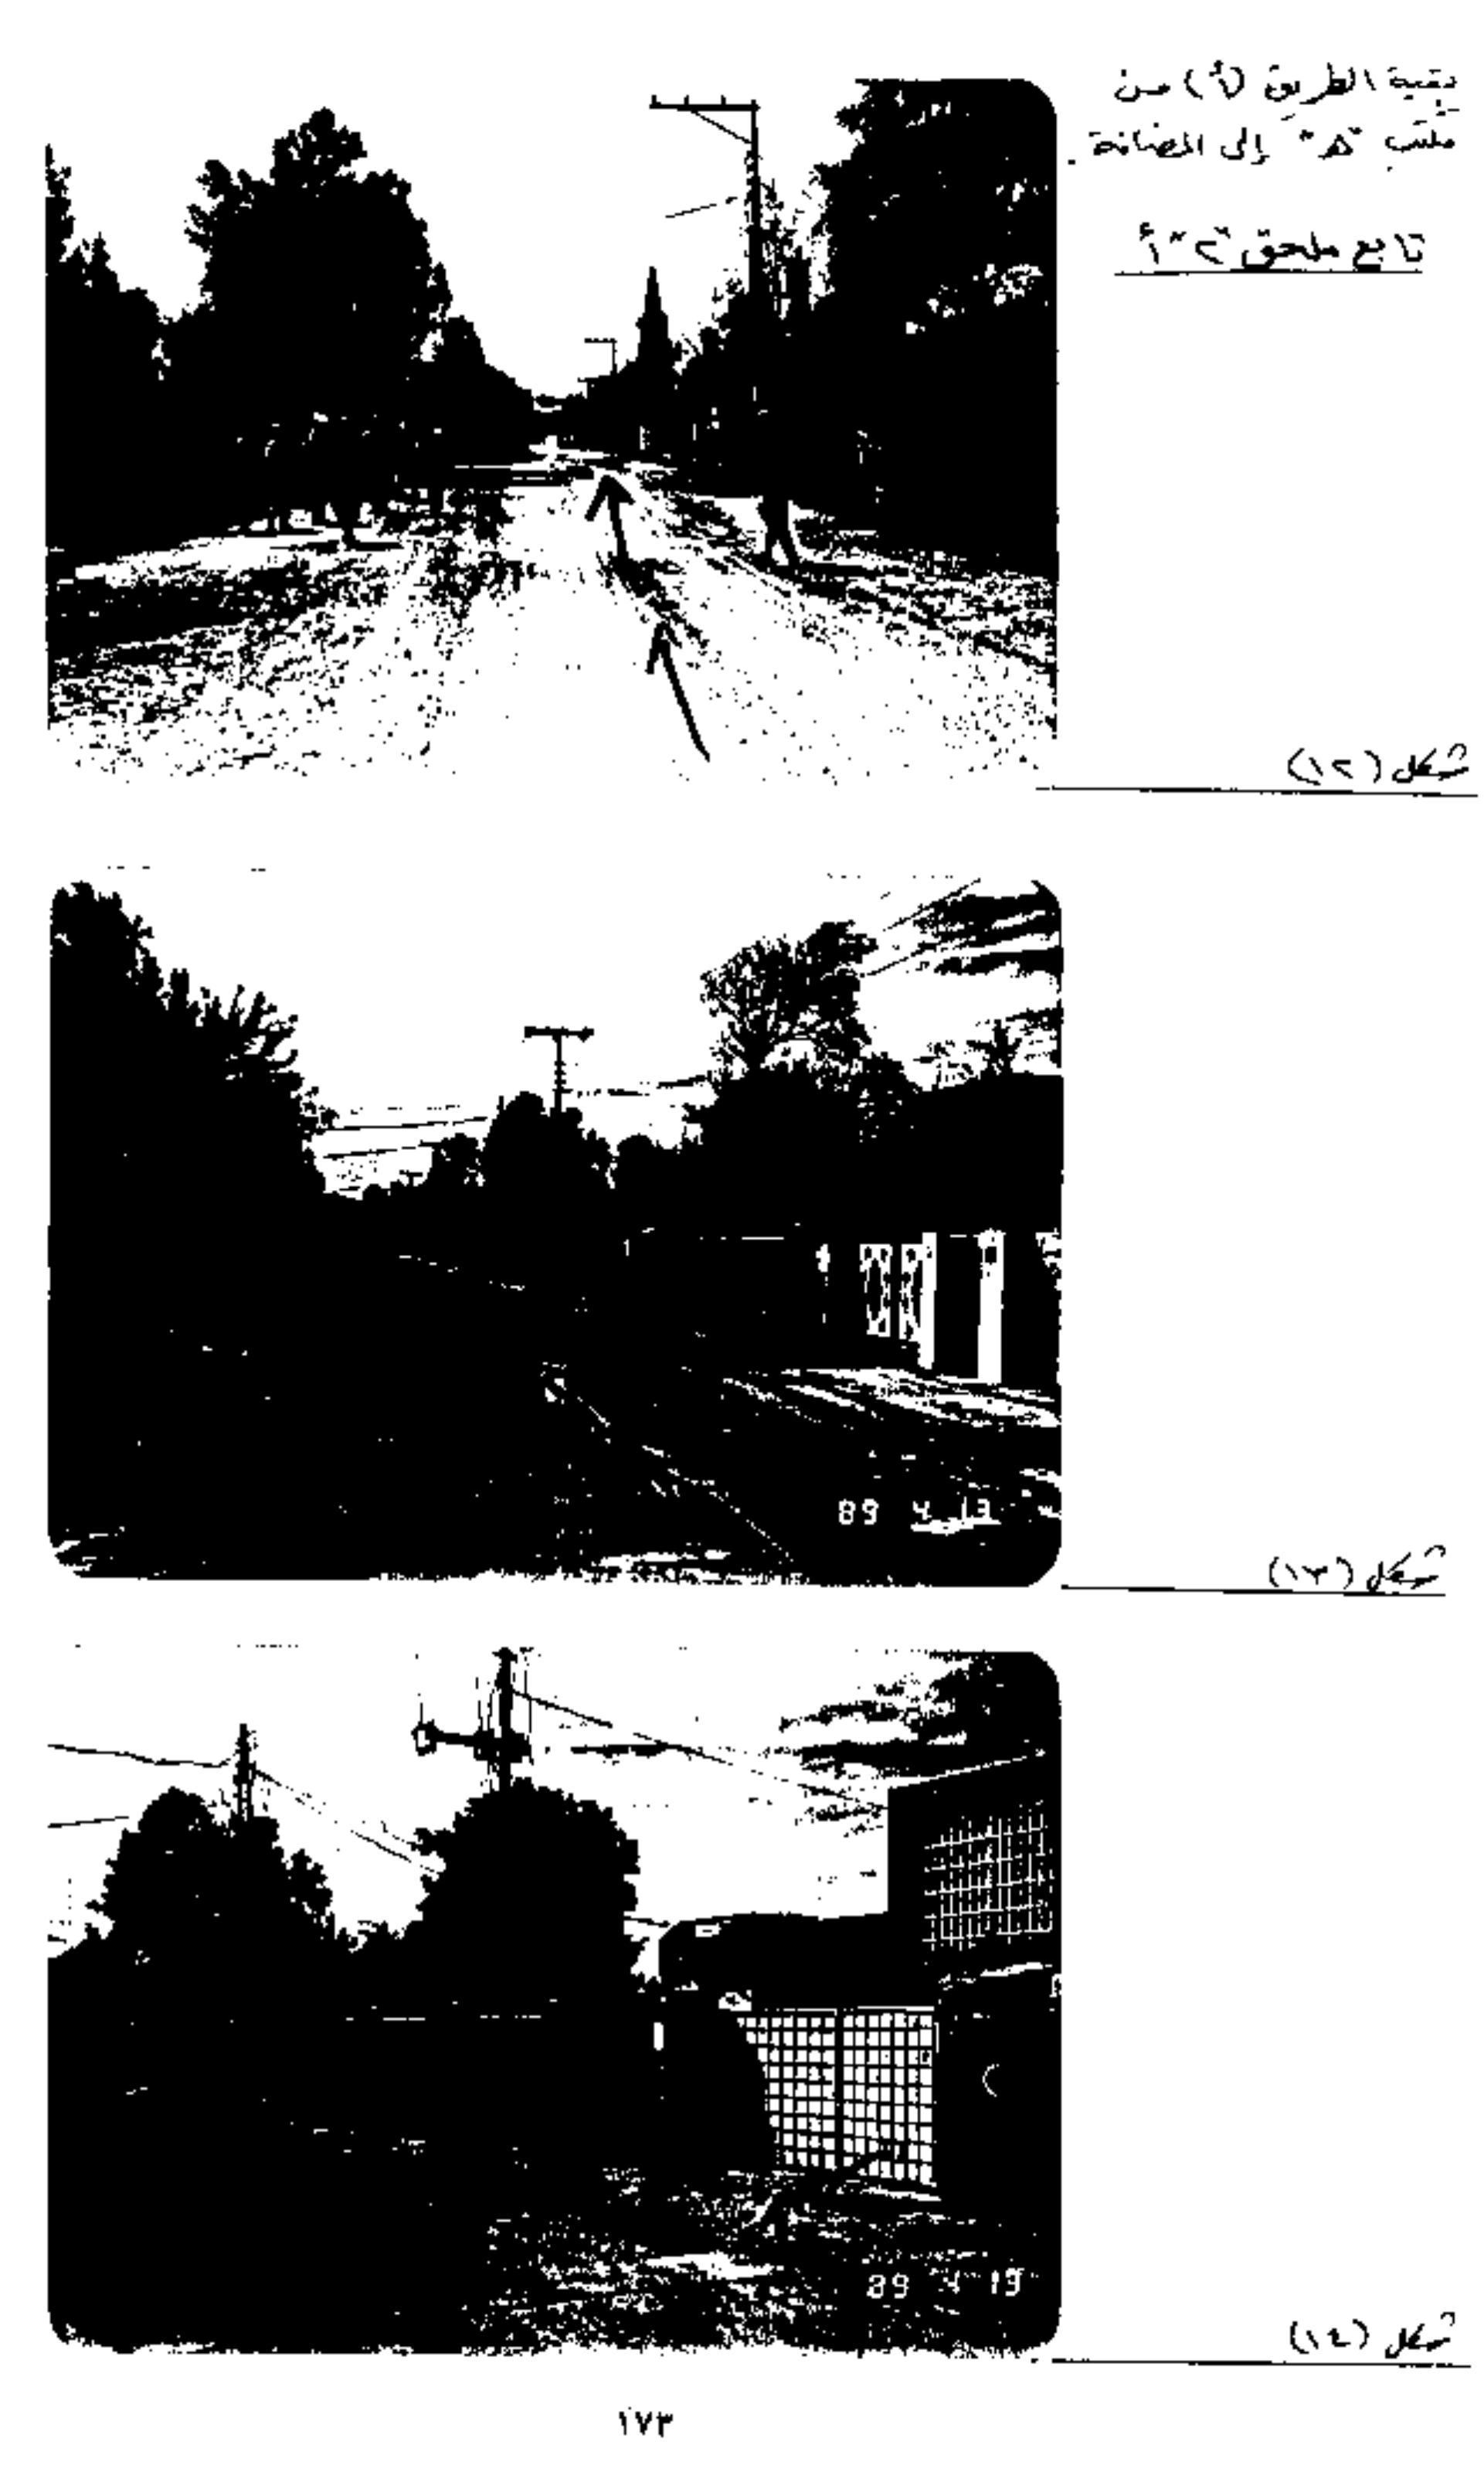 بقية الطريق (أ) من
ملعب "٨" إلى الحضانة.
تابع ملحق ٢-٤
شكل (١٢)
89 4 13
شكل (١٣)
89 4 13
شكل (١٤)
١٧٣